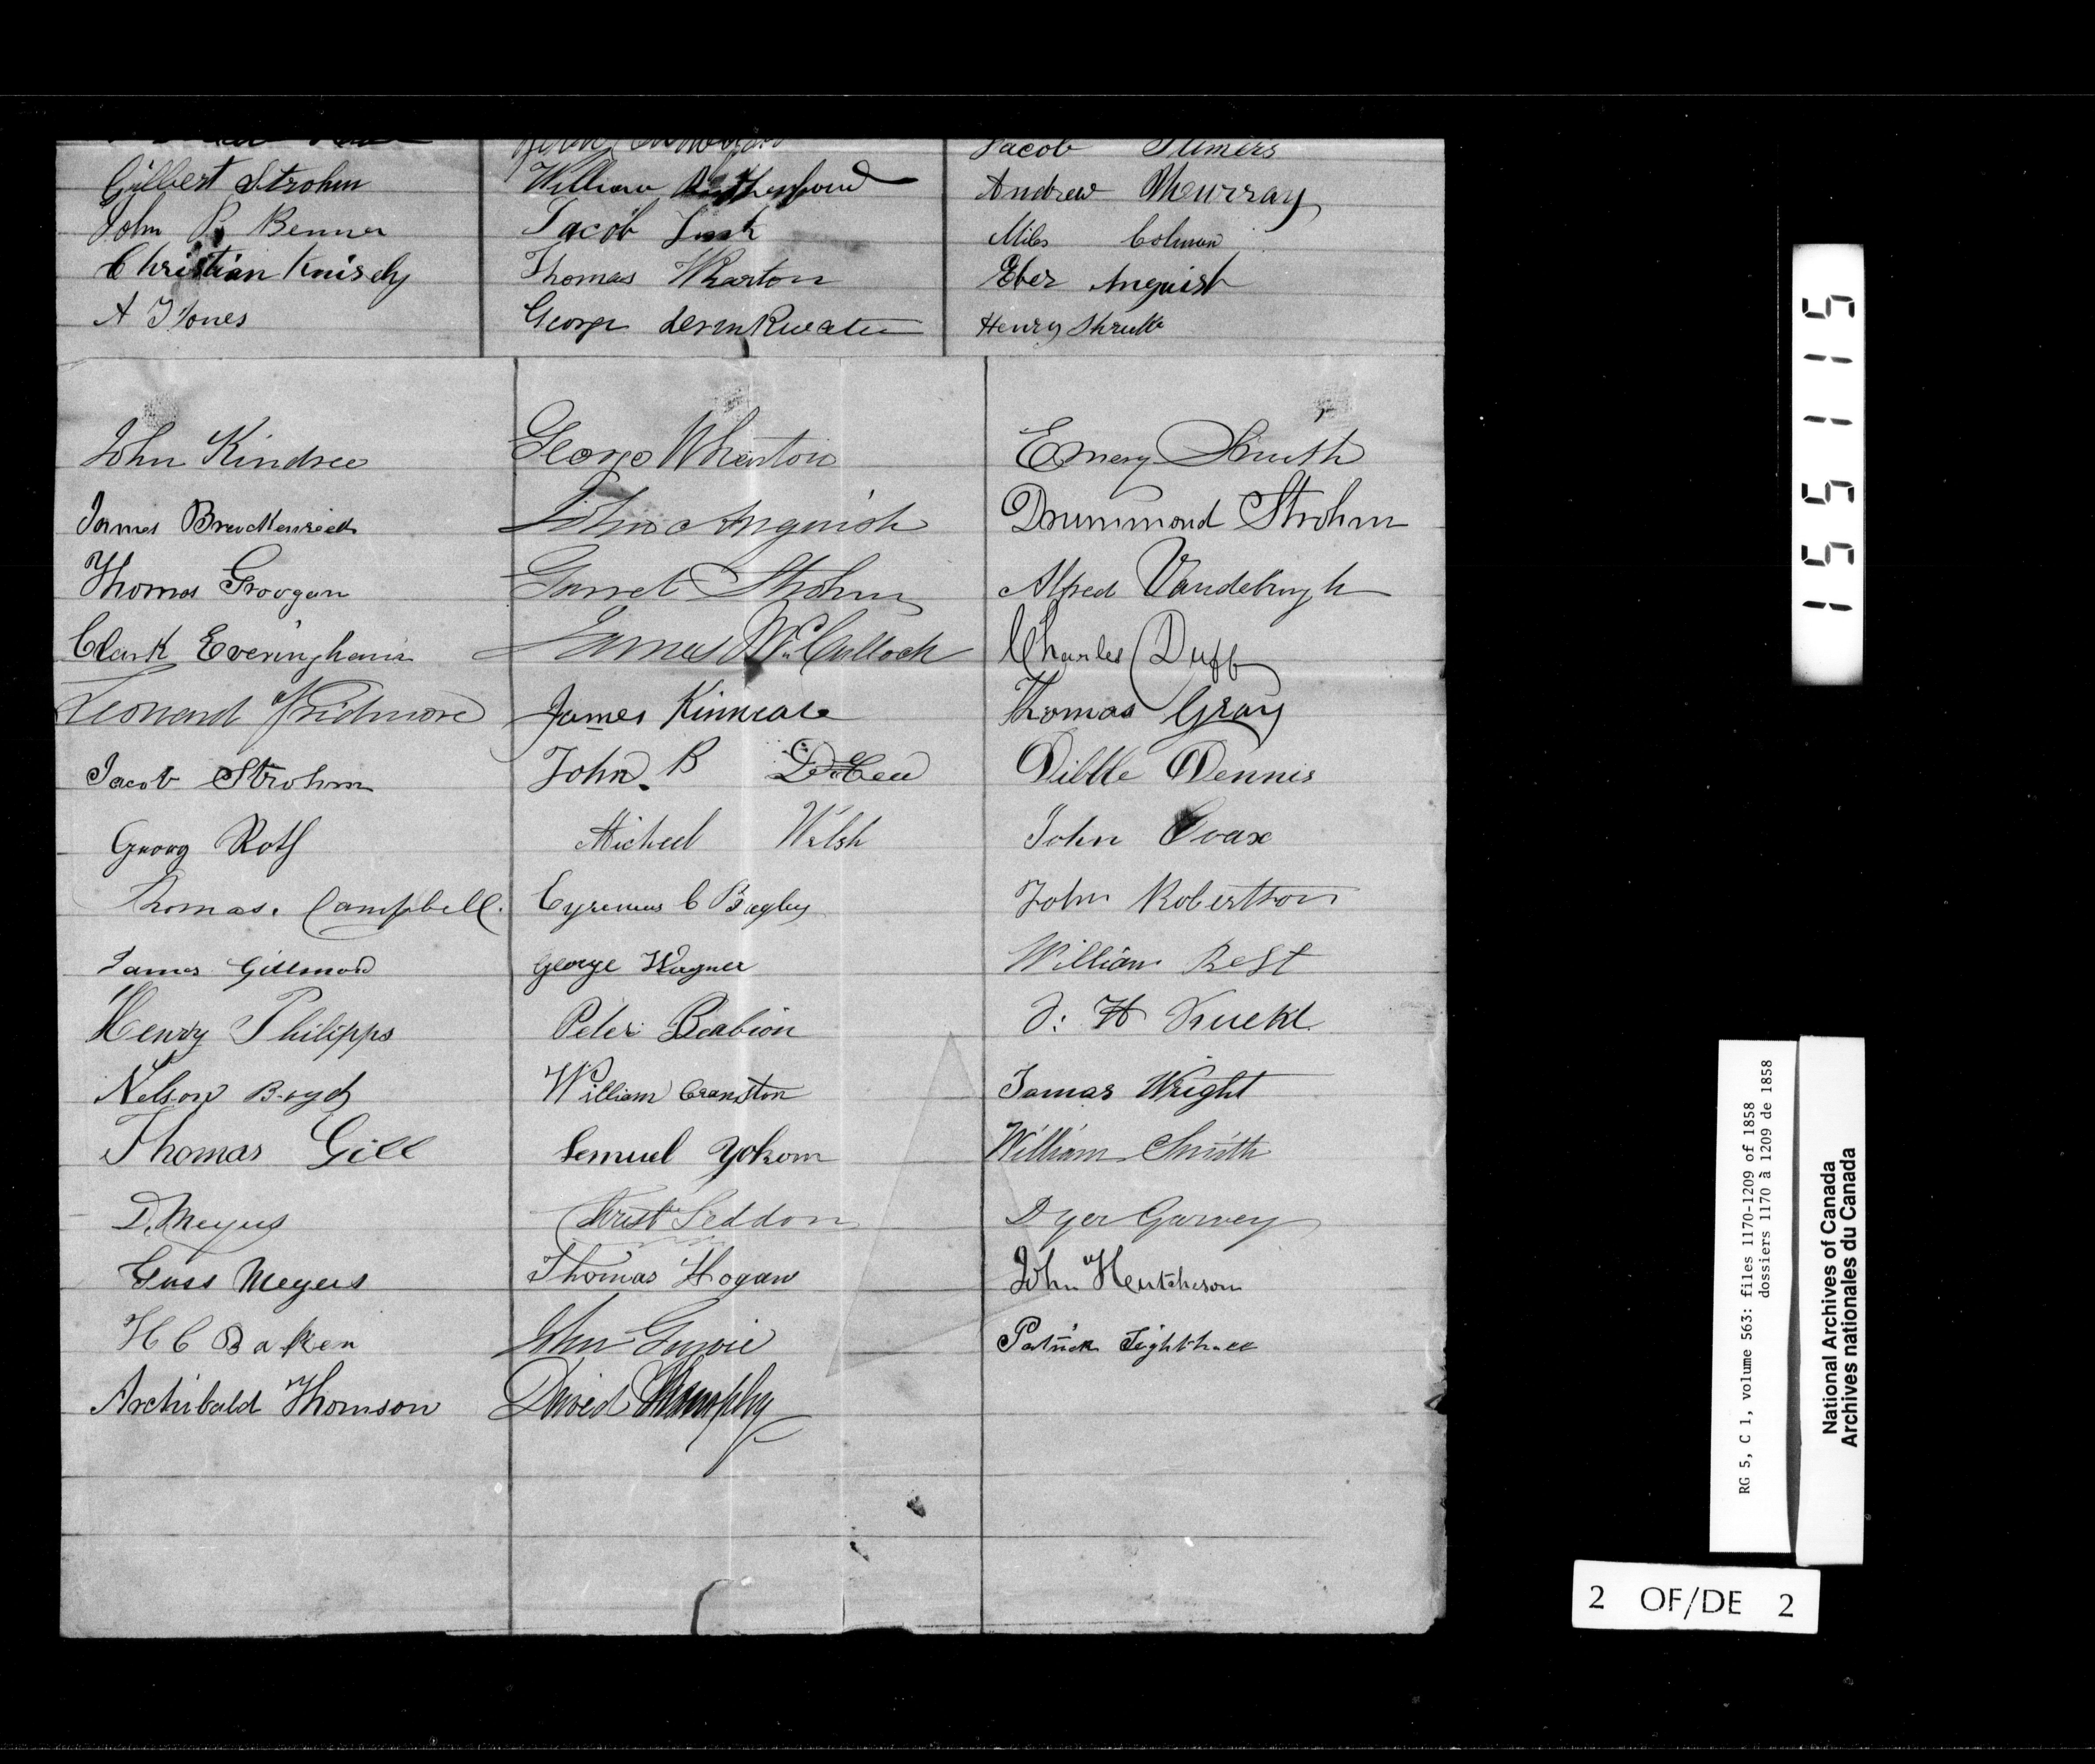 Jacob Sumers
Gilbert Strohm
William Rutherford
Andrew Murray
John P. Benner
Jacob Link
Miles Colman
Christian Knisely
Thomas Wharton
Eber Anguish
A T Jones
George
Henry
John Kindree
George Wharton
Emery Smith
James
John Anguish
Drummond Strohm
Thomas Groogan
Garret Strohm
Alfred Vandeburgh
Clark Everingham
James McCulloch
Charles Duff
Leonard Pridmore
James Kinnear
Thomas Gray
Jacob Strohm
John B DeCew
Dillle Dennis
Georg Roth
Micheel Welsh
John Coax
Thomas. Campbell.
Cyrenius C Bagley
John Robertson
James Gillmore
George Wagner
William Best
Henry Philipps
Peter Babion
J: H
Nelson Boyd
William Cranston
James Wright
Thomas Gill
Lemuel Yokom
William Smith
D. Meyers
Christ Seddon
Dyer Garvey
Guss Meyers
Thomas Hogan
John Hutcheson
H C Baker
John
Patrick Lighthall
Archibald Thomson
David Murphy
15 5 1 1 5
RG 5, C 1, volume 563: files 1170-1209 of 1858
dossiers 1170 à 1209 de 1858
National Archives of Canada
Archives nationales du Canada
2 OF/DE 2